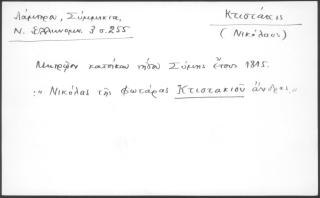 Λάμπρου, Σύμμικτα,
Ν. Ἑλληνομν. 3 σ. 255
Κτιστάκις
(Νικόλαος)
κατοίκων νήσου Σύμης ἔτους 1815.
:" Νικόλας τῆς φωτάρας Κτιστακιοῦ ἄνδρας."